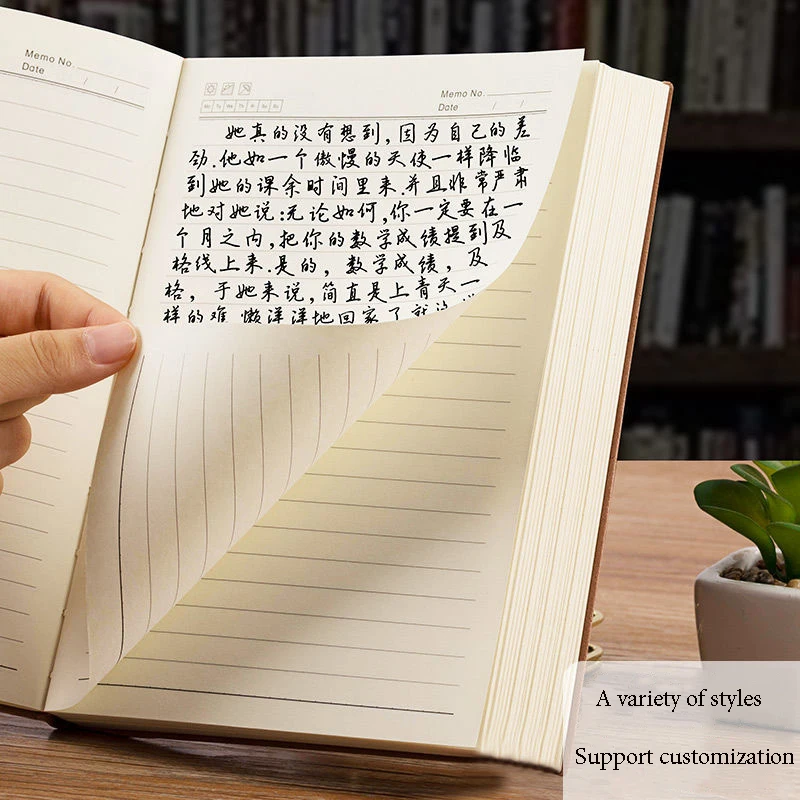 Memo No.
Date / /
Mo Tu We Th Fr Sa Su
Memo No.
Date / /
她真的没有想到,因为自己的差
劲.他如一个傲慢的天使一样降临
到她的课余时间里来.并且非常严肃
地对她说:无论如何,你一定要在一
个月之内,把你的数学成绩提到及
格线上来.是的,数学成绩,及
格,于她来说,简直是上青天一
样的难 懒洋洋地回家了
A variety of styles
Support customization